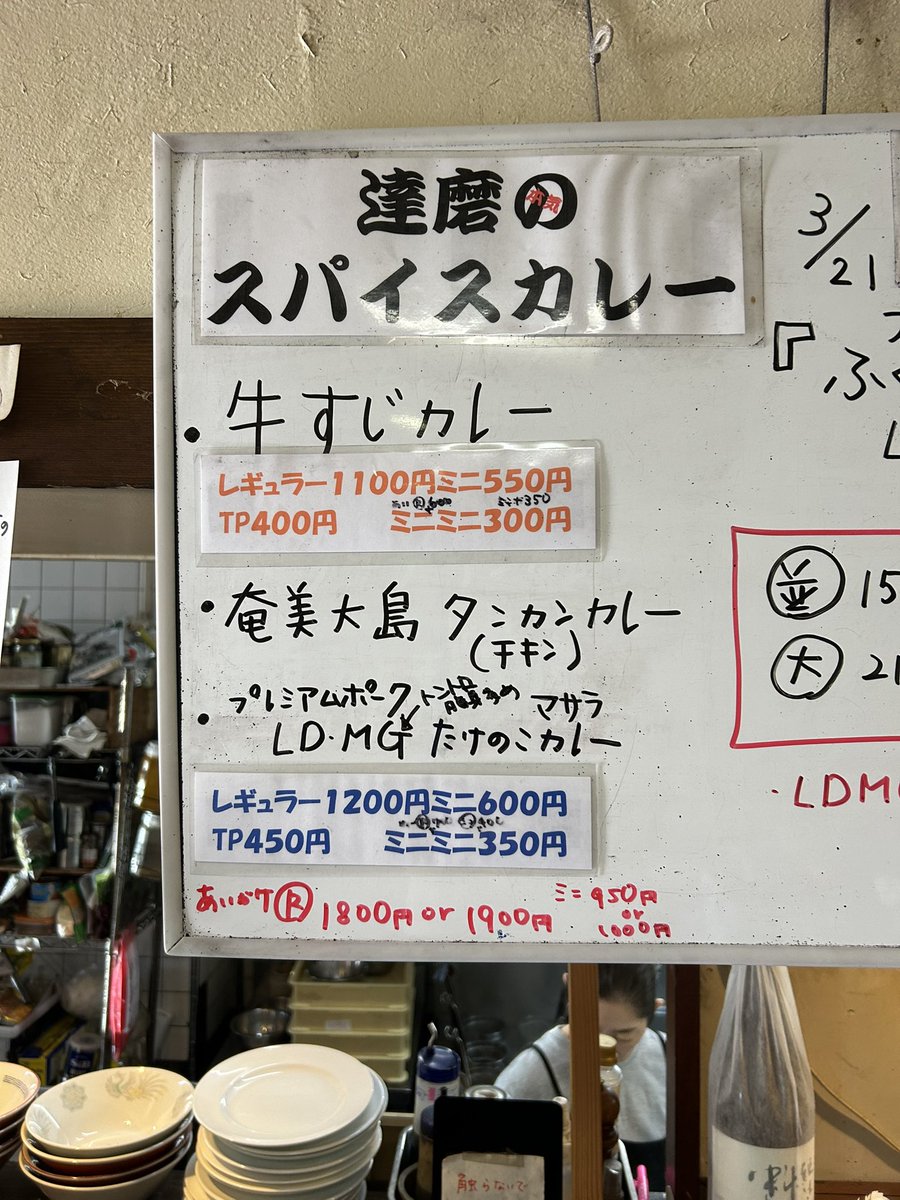 達磨の
本気
スパイスカレー
・牛すじカレー
レギュラー1100円ミニ550円
TP400円 ミニミニ300円
・奄美大島 タンカンカレー
(チキン)
・プレミアムポーク マサラ
LD・MG たけのこカレー
レギュラー1200円ミニ600円
TP450円 ミニミニ350円
あいがけ Ⓡ 1800円 or 1900円
ミニ 950円
or
1000円
3/21
『ふ
並 15
大 21
・LDM
触らないで